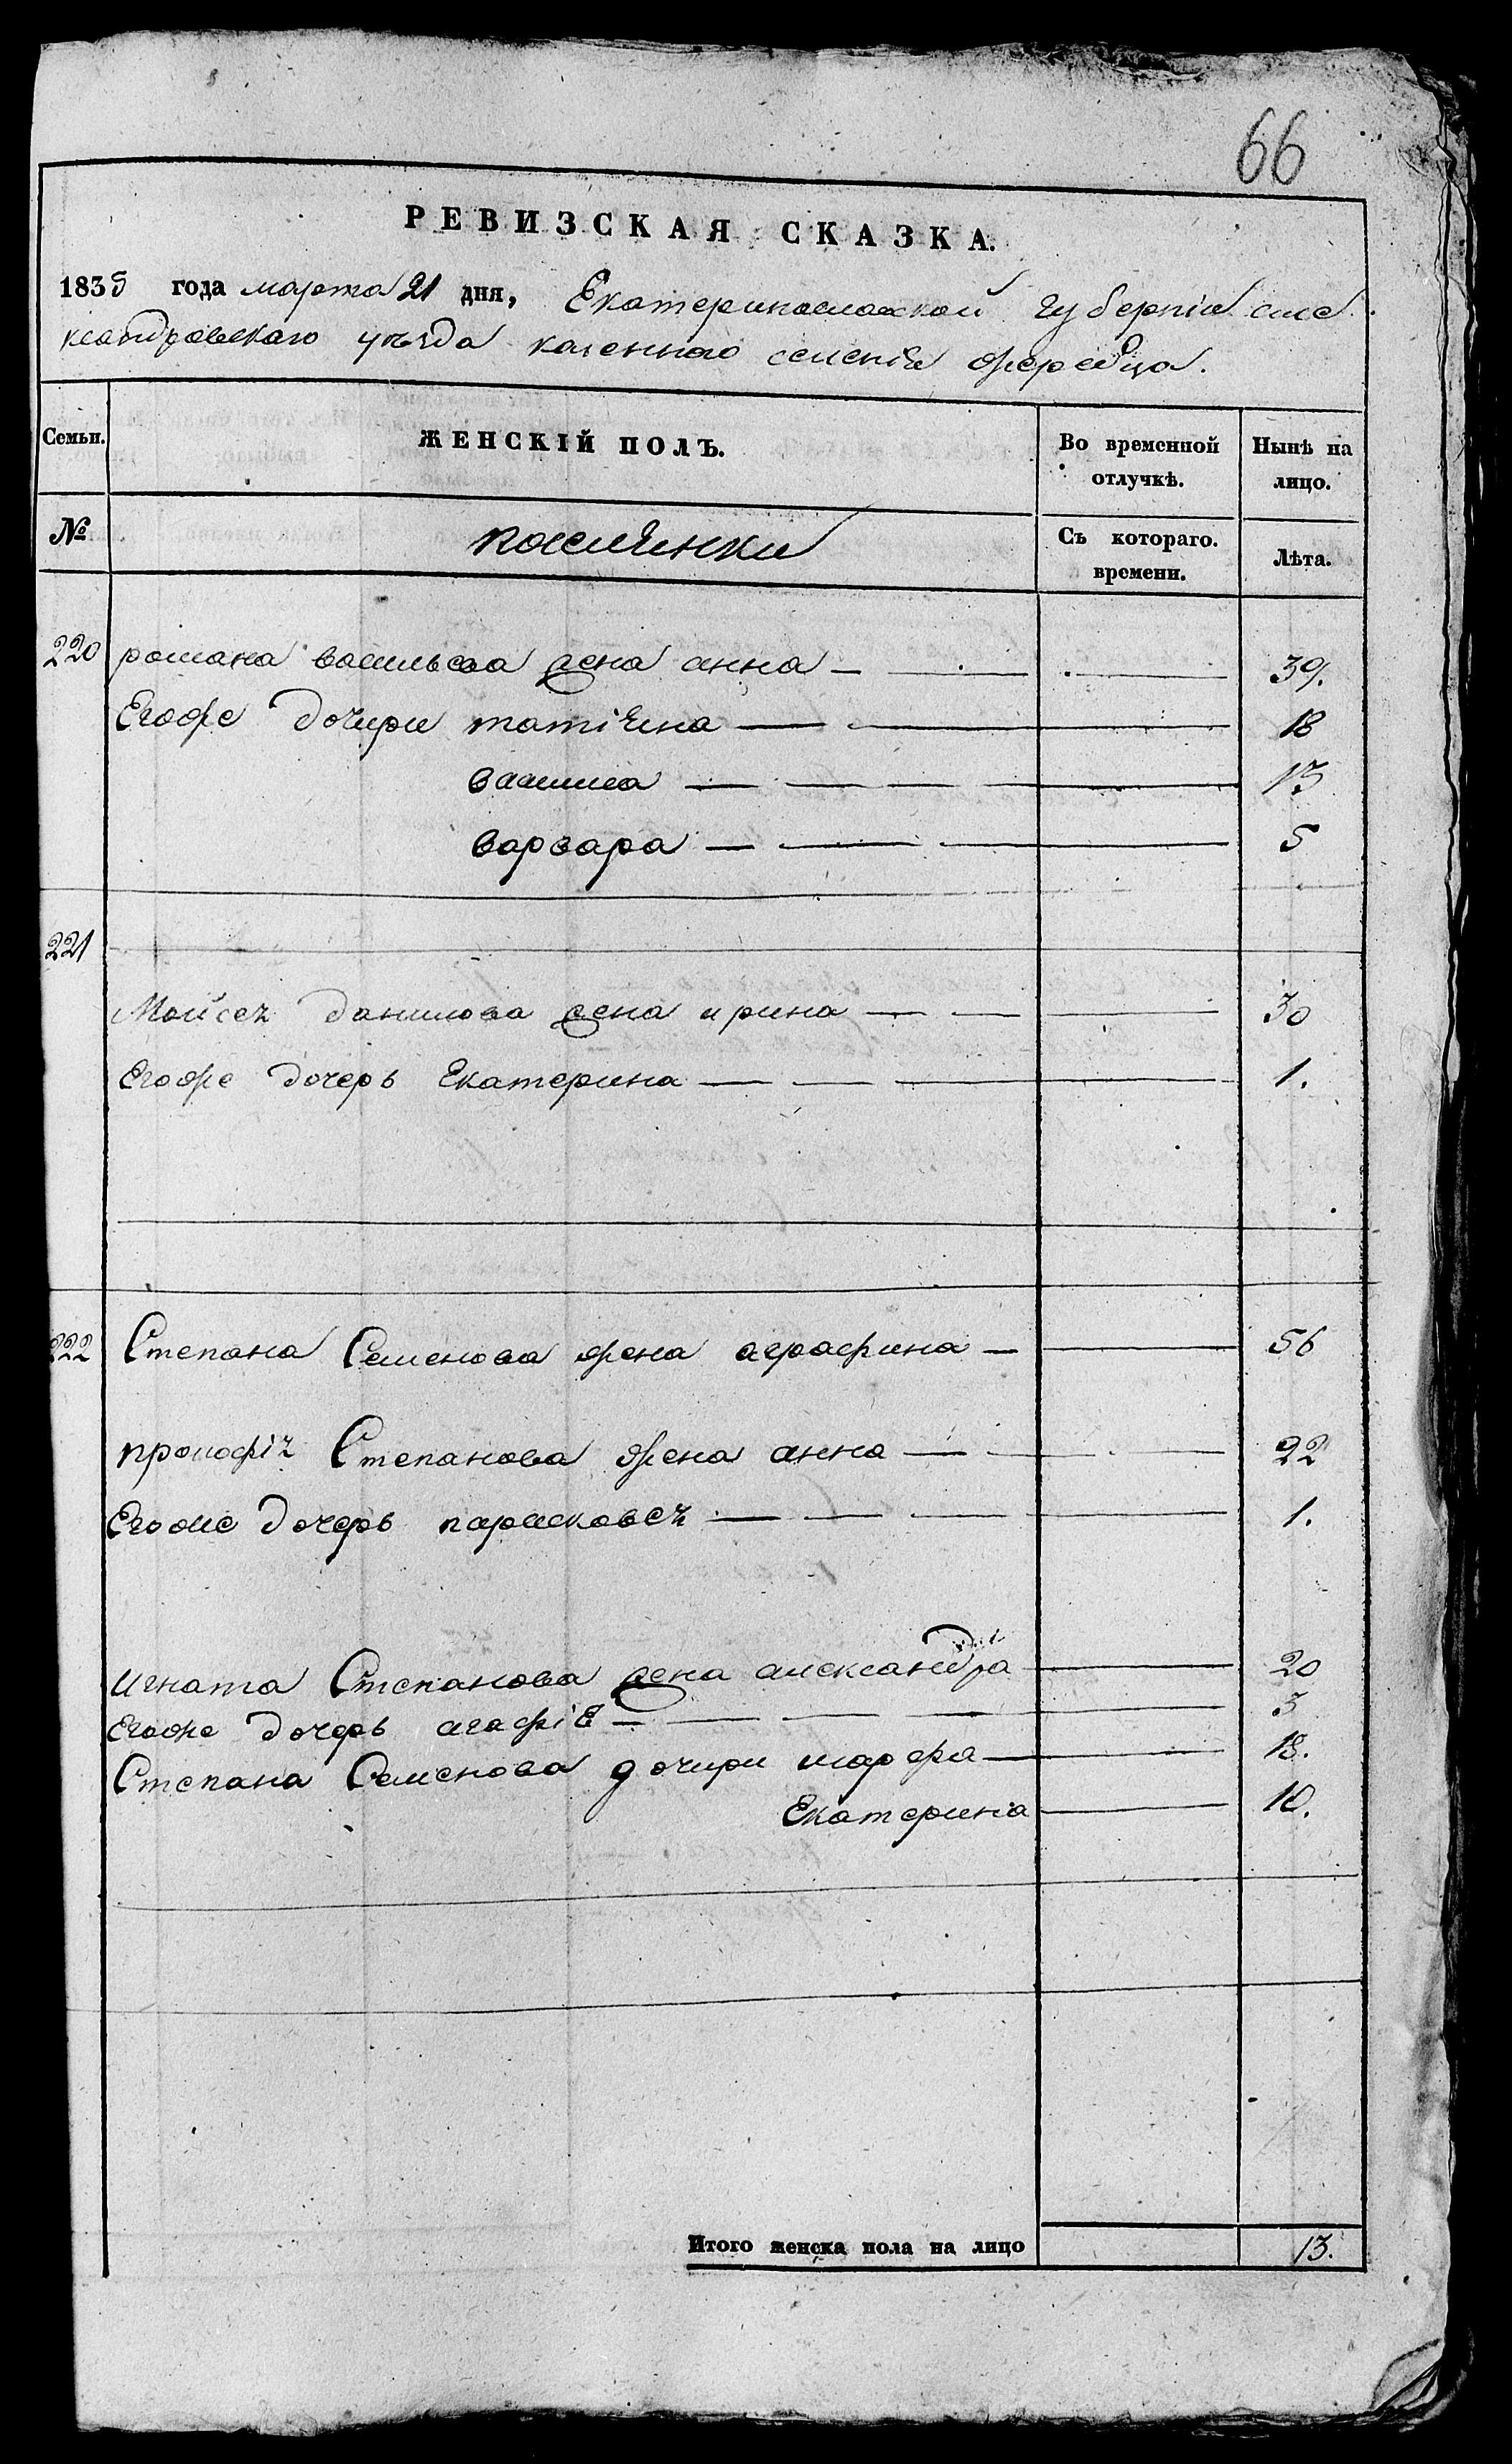 66
РЕВИЗСКАЯ СКАЗКА.
1835 года марта 21 дня, Екатеринославской губерніи Але
ксандровскаго уѣзда казеннаго селенія Жеребца.
Семьи. ЖЕНСКІЙ ПОЛЪ. Во временной отлучкѣ. Нынѣ на лицо.
№ Съ котораго. времени. Лѣта.
220 романа васильева жена анна 39.
Егоже дочири татіяна 18
васила 13
варвара 5
221
Мойсея данилова жена ирина 30
Егоже дочерь Екатерина 1.
222 Степана Семенова жена аграфина 56
прокофія Степанова жена анна 22
Егоже дочерь парасковея 1.
игната Степанова жена александра 20
Егоже дочерь агафія 3
Степана Семенова дочири марфа 18.
Екатерина 10.
Итого женска пола на лицо 13.